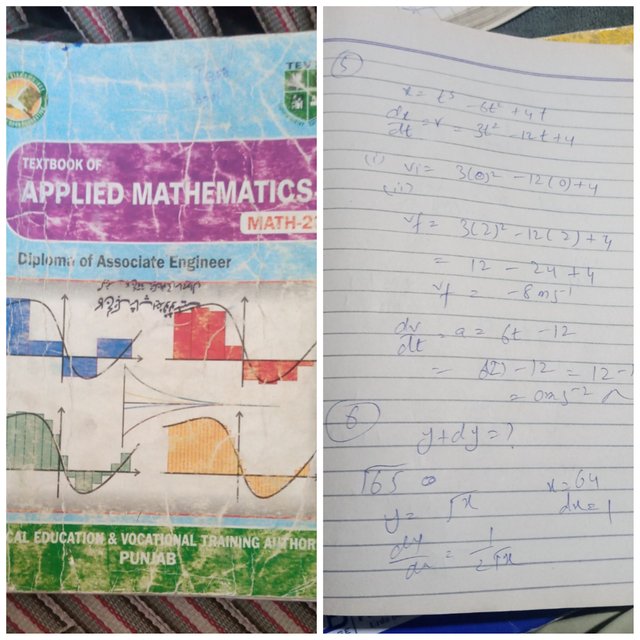 TEV
TEXTBOOK OF
APPLIED MATHEMATICS
MATH-2
Diploma of Associate Engineer
CAL EDUCATION & VOCATIONAL TRAINING AUTHOR
PUNJAB
5
x = t³ - 6t² + 4t
dx/dt = v = 3t² - 12t + 4
(i) vi = 3(0)² - 12(0) + 4
(ii)
vf = 3(2)² - 12(2) + 4
= 12 - 24 + 4
vf = -8ms⁻¹
dv/dt = a = 6t - 12
= 6(2) - 12 = 12 -
= 0ms⁻²
6
y + dy = ?
√65
x = 64
y = √x
dx = 1
dy/dx = 1/2√x